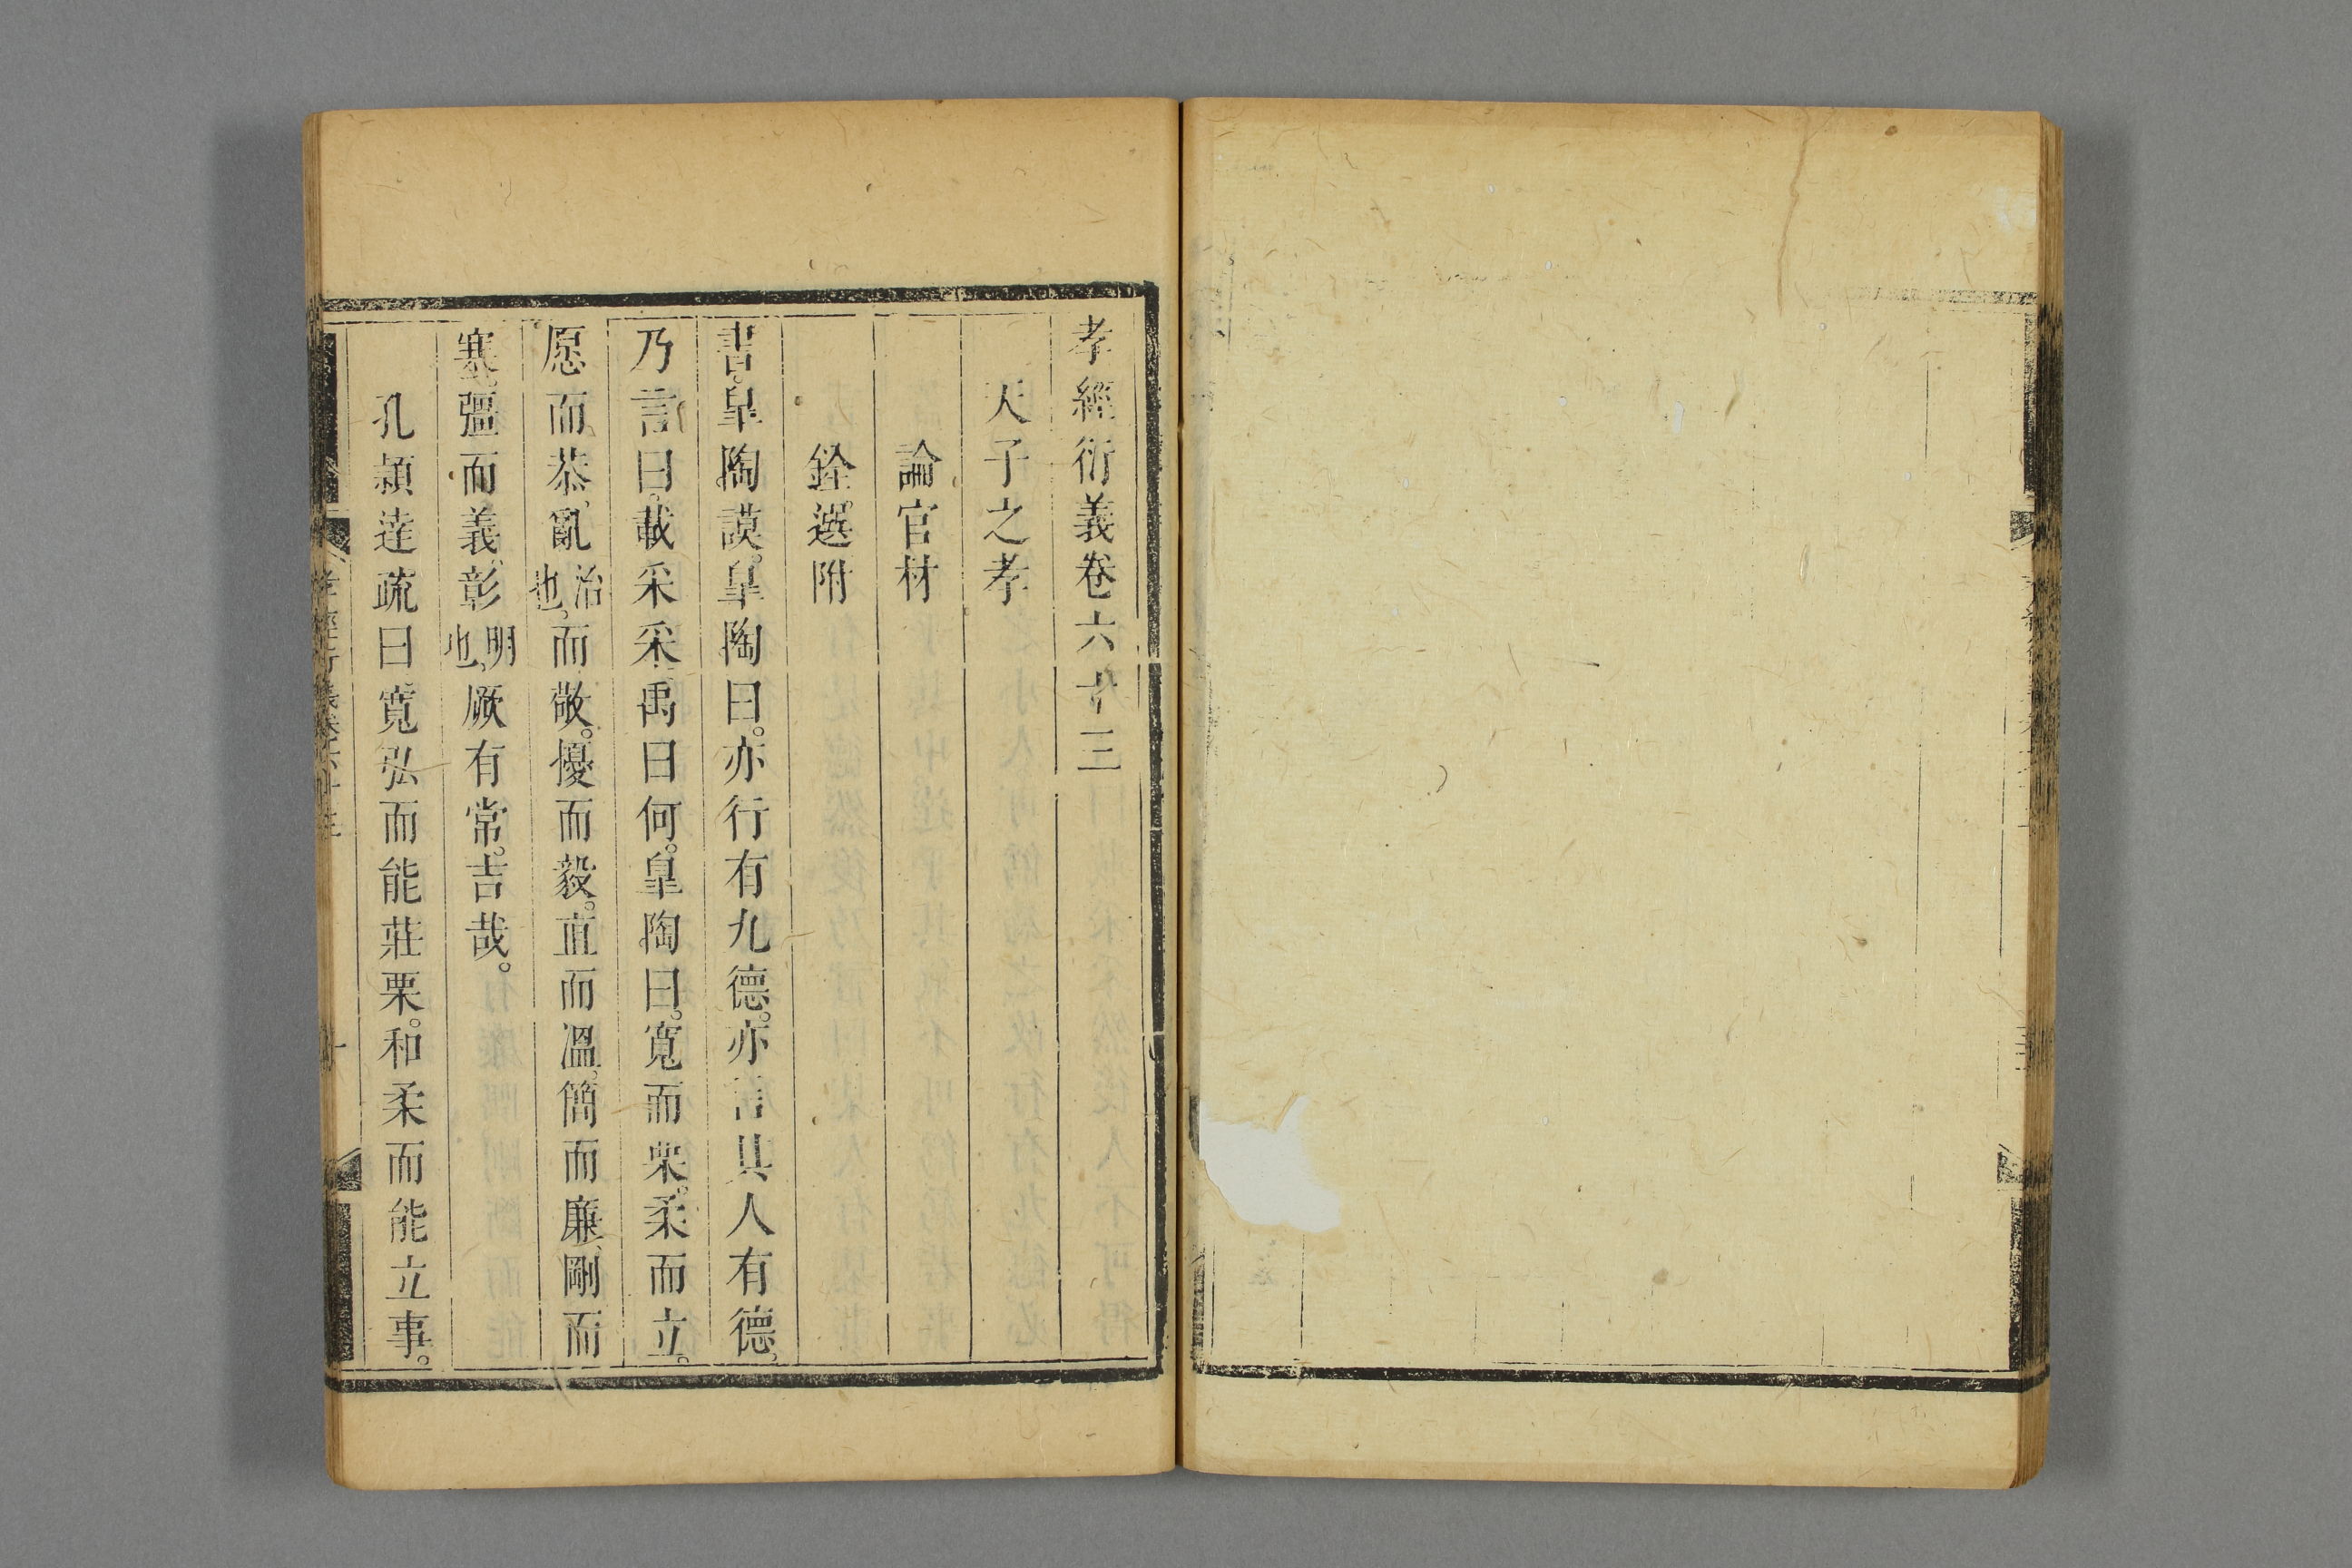 孝經衍義卷六十三
天子之孝
論官材
銓選附
書。皐陶謨。皐陶曰。亦行有九德。亦言其人有德。
乃言曰。載采采。禹曰何。皐陶曰。寬而栗。柔而立。
愿而恭。亂治也。而敬。擾而毅。直而溫。簡而廉。剛而
塞。彊而義。彰明也。厥有常。吉哉。
孔穎達疏曰。寬弘而能莊栗。和柔而能立事。
孝經衍義卷六十三